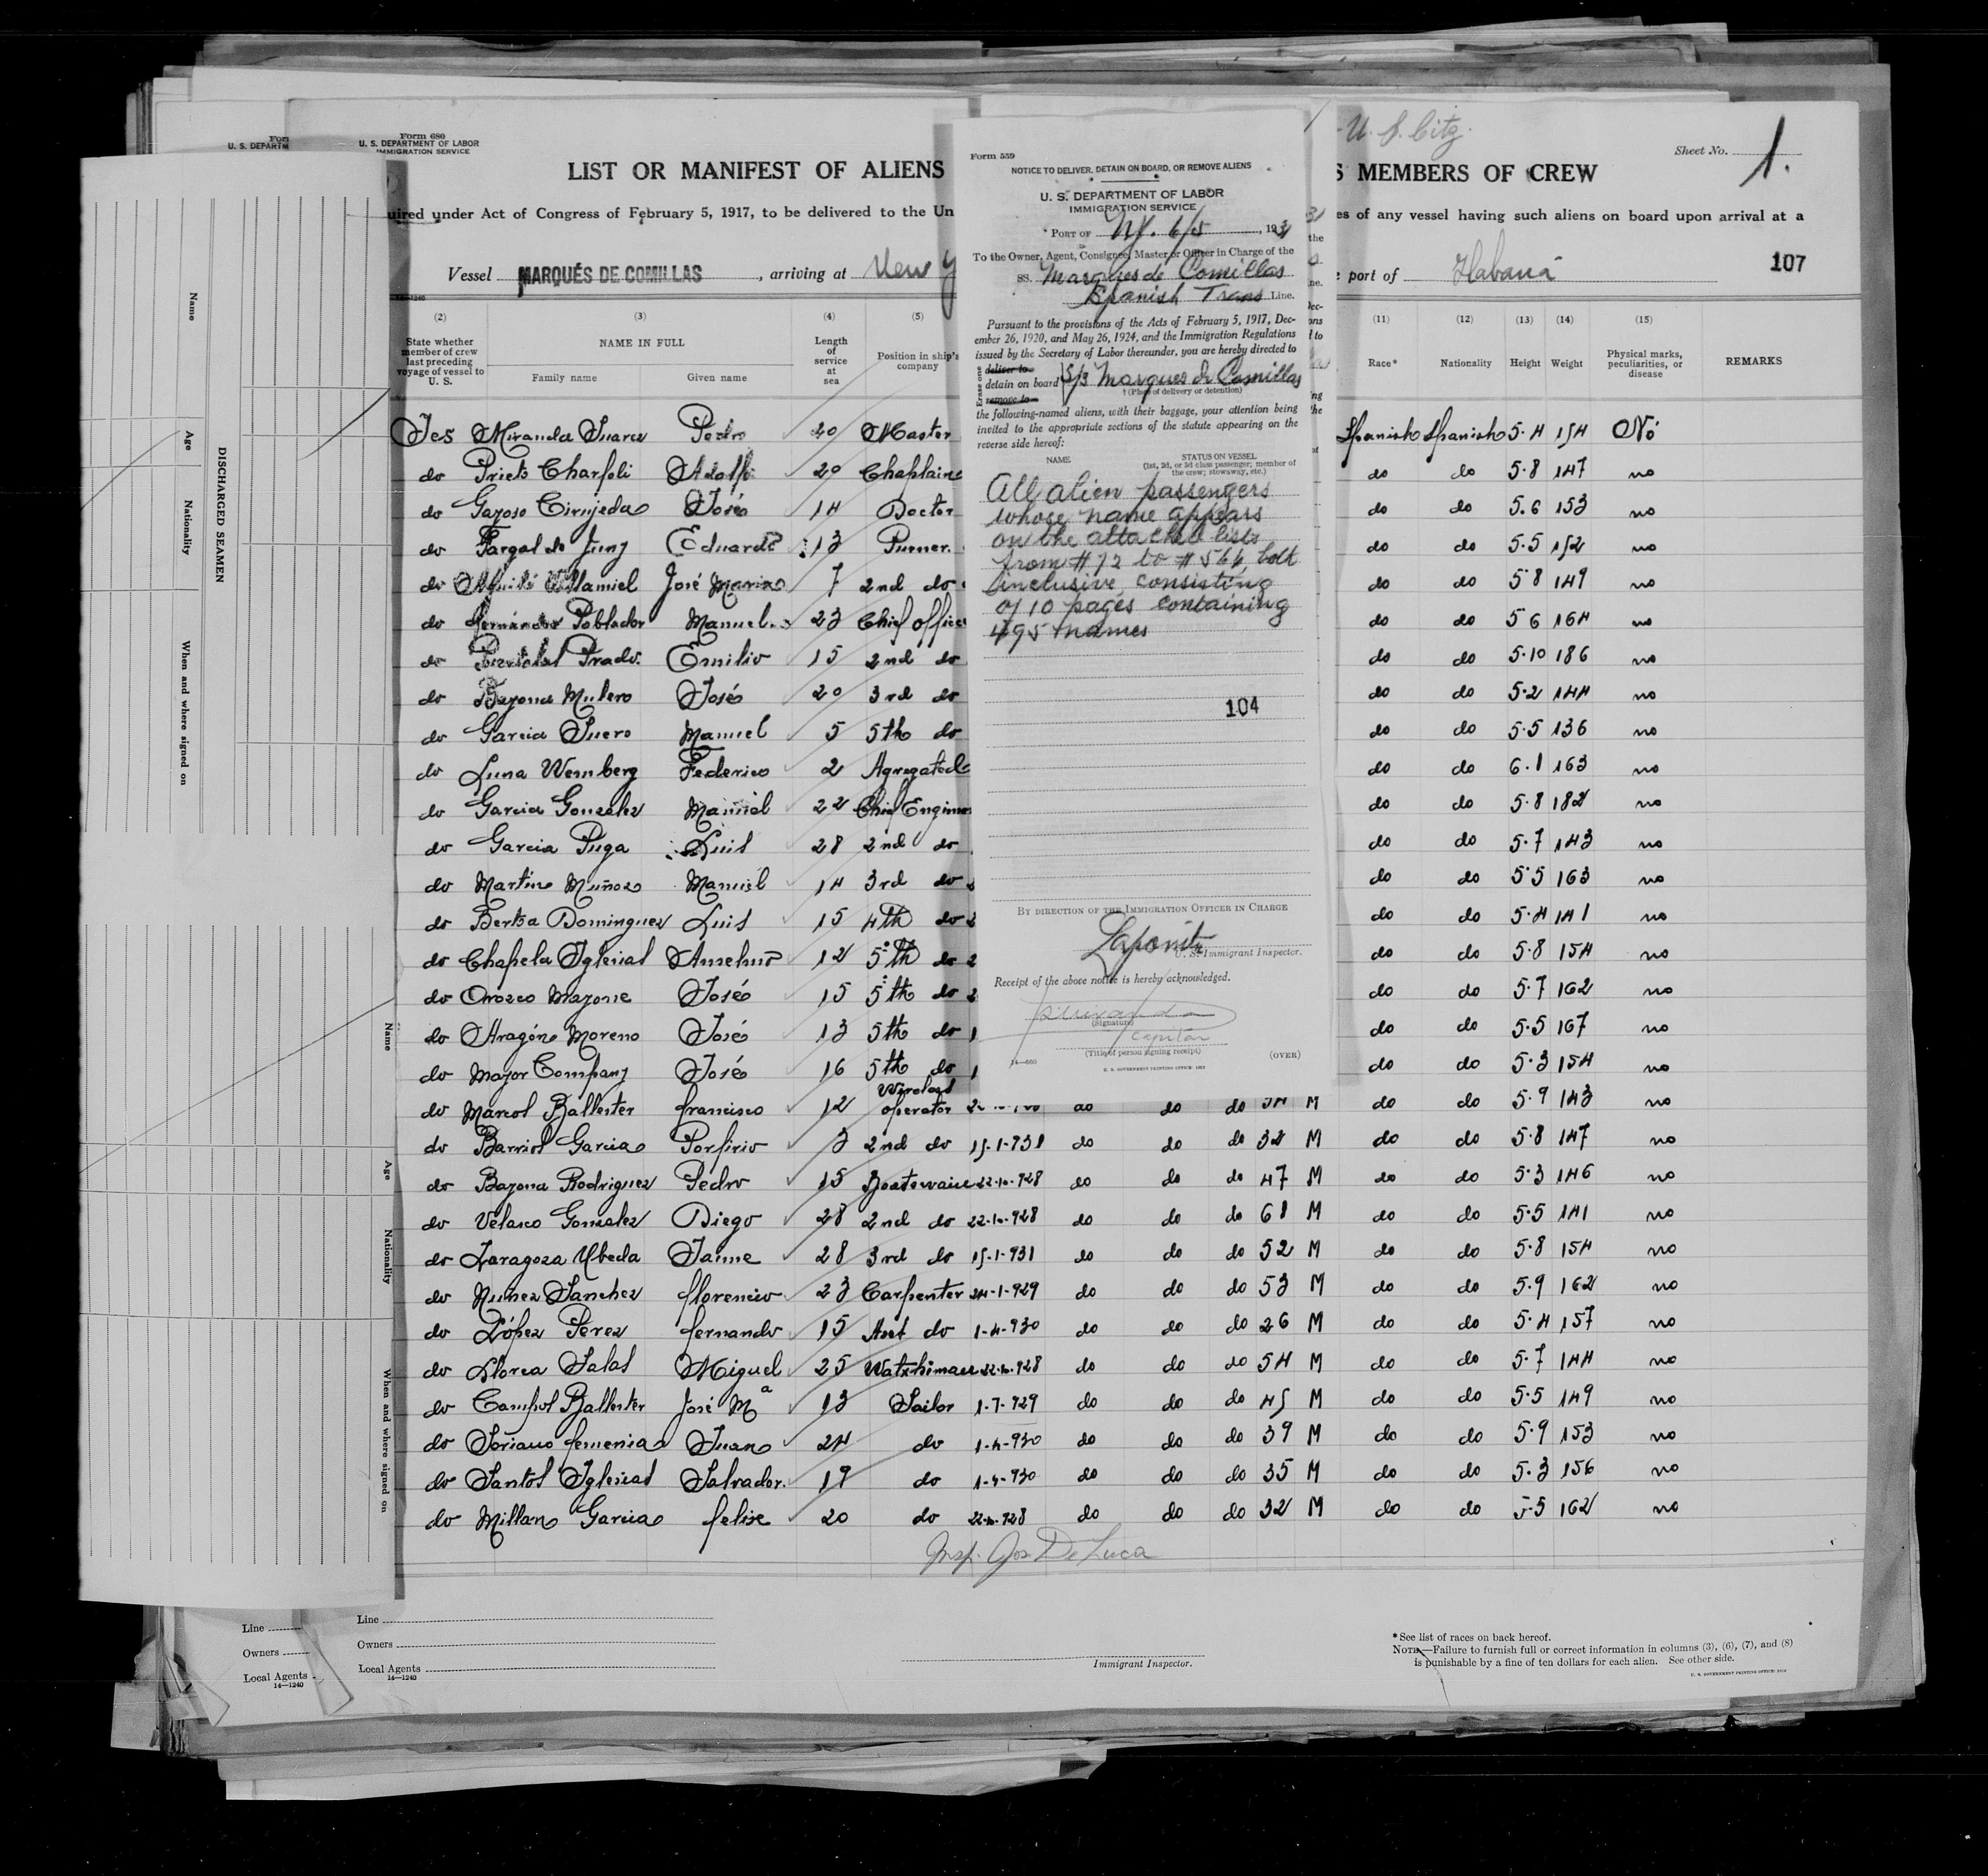 Form 680
U. S. DEPARTMENT OF LABOR
IMMIGRATION SERVICE
U. S. Citz.
Sheet No. 1.
LIST OR MANIFEST OF ALIENS
S MEMBERS OF CREW
uired under Act of Congress of February 5, 1917, to be delivered to the Un
es of any vessel having such aliens on board upon arrival at a
Vessel MARQUÉS DE COMILLAS, arriving at New Y
port of Habana
107
(2) (3) (4) (5) (11) (12) (13) (14) (15)
State whether member of crew last preceding voyage of vessel to U. S.
NAME IN FULL
Family name Given name
Length of service at sea
Position in ship's company
Race* Nationality Height Weight
Physical marks, peculiarities, or disease
REMARKS
Yes Miranda Suarez Pedro 20 Master Spanish Spanish 5.4 154 No
do Prieto Adolfo 20 Chaplain do do 5.8 147 no
do Gayoso Cirujeda José 14 Doctor do do 5.6 153 no
do Eduardo 13 Purser. do do 5.5 152 no
do José Maria 7 2nd do do do 5 8 149 no
do Fernández Poblador Manuel 23 Chief office do do 5 6 164 no
do Prado. Emilio 15 2nd do do do 5.10 186 no
do Bayona Mulero José 20 3rd do do do 5.2 144 no
do Garcia Suero Manuel 5 5th do do do 5.5 136 no
do Luna Wernberg Federico 2 Agregated do do 6.1 163 no
do Garcia Gonzalez Manuel 22 Chief Engine do do 5.8 182 no
do Garcia Puga Luis 28 2nd do do do 5.7 143 no
do Martine Muñoz Manuel 14 3rd do do do 5.5 163 no
do Bertoa Dominguez Luis 15 4th do do do 5.4 141 no
do Chapela Iglesias Anselmo 12 5th do do do 5.8 154 no
do Orozco Mayone José 15 5th do do do 5.7 162 no
do Aragón Moreno José 13 5th do do do 5.5 167 no
do Mayor Company José 16 5th do do do 5.3 154 no
do Marcos Ballester francisco 12 Wireless operator do do do 34 M do do 5.9 143 no
do Barrios Garcia Porfirio 3 2nd do 15-1-931 do do do 32 M do do 5.8 147 no
do Bayona Rodriguez Pedro 15 Boatswain 22-10-928 do do do 47 M do do 5.3 146 no
do Velasco Gonzalez Diego 28 2nd do 22-10-928 do do do 61 M do do 5.5 141 no
do Zaragoza Ubeda Jaime 28 3rd do 15-1-931 do do do 52 M do do 5.8 154 no
do Nuñez Sanchez florencio 23 Carpenter 24-1-929 do do do 53 M do do 5.9 162 no
do López Perez fernando 15 Asst do 1-4-930 do do do 26 M do do 5.4 157 no
do Llorca Salas Miguel 25 Watxhiman 22-10-928 do do do 54 M do do 5.7 144 no
do Campos Ballester José Mª 13 Sailor 1-7-929 do do do 45 M do do 5.5 149 no
do Soriano femenia Juan 24 do 1-4-930 do do do 39 M do do 5.9 153 no
do Santos Iglesias Salvador. 19 do 1-4-930 do do do 35 M do do 5.3 156 no
do Millan Garcia felise 20 do 22-10-928 do do do 32 M do do 5.5 162 no
Insp. Jos. De Luca
Line
Owners
Local Agents
14—1240
Immigrant Inspector.
*See list of races on back hereof.
NOTE.—Failure to furnish full or correct information in columns (3), (6), (7), and (8)
is punishable by a fine of ten dollars for each alien. See other side.
Form 559
NOTICE TO DELIVER, DETAIN ON BOARD, OR REMOVE ALIENS
U. S. DEPARTMENT OF LABOR
IMMIGRATION SERVICE
PORT OF N.Y. 6/5, 1931
To the Owner, Agent, Consignee, Master or Officer in Charge of the
SS. Marques de Comillas
Spanish Trans Line.
Pursuant to the provisions of the Acts of February 5, 1917, Dec-
ember 26, 1920, and May 26, 1924, and the Immigration Regulations
issued by the Secretary of Labor thereunder, you are hereby directed to
Erase one
deliver to
detain on board S/S Marques de Comillas
remove to
† (Place of delivery or detention)
the following-named aliens, with their baggage, your attention being
invited to the appropriate sections of the statute appearing on the
reverse side hereof:
NAME
STATUS ON VESSEL
(1st, 2d, or 3d class passenger; member of
the crew; stowaway, etc.)
All alien passengers
whose name appears
on the attached lists
from #72 to #566, both
inclusive, consisting
of 10 pages containing
495 names
104
BY DIRECTION OF THE IMMIGRATION OFFICER IN CHARGE
U. S. Immigrant Inspector.
Receipt of the above notice is hereby acknowledged.
(Signature)
Capitán
(Title of person signing receipt)
(OVER)
U. S. GOVERNMENT PRINTING OFFICE
DISCHARGED SEAMEN
Name
Age
Nationality
When and where signed on
Name
Age
Nationality
When and where signed on
U. S. DEPARTM
Line
Owners
Local Agents
14—1240